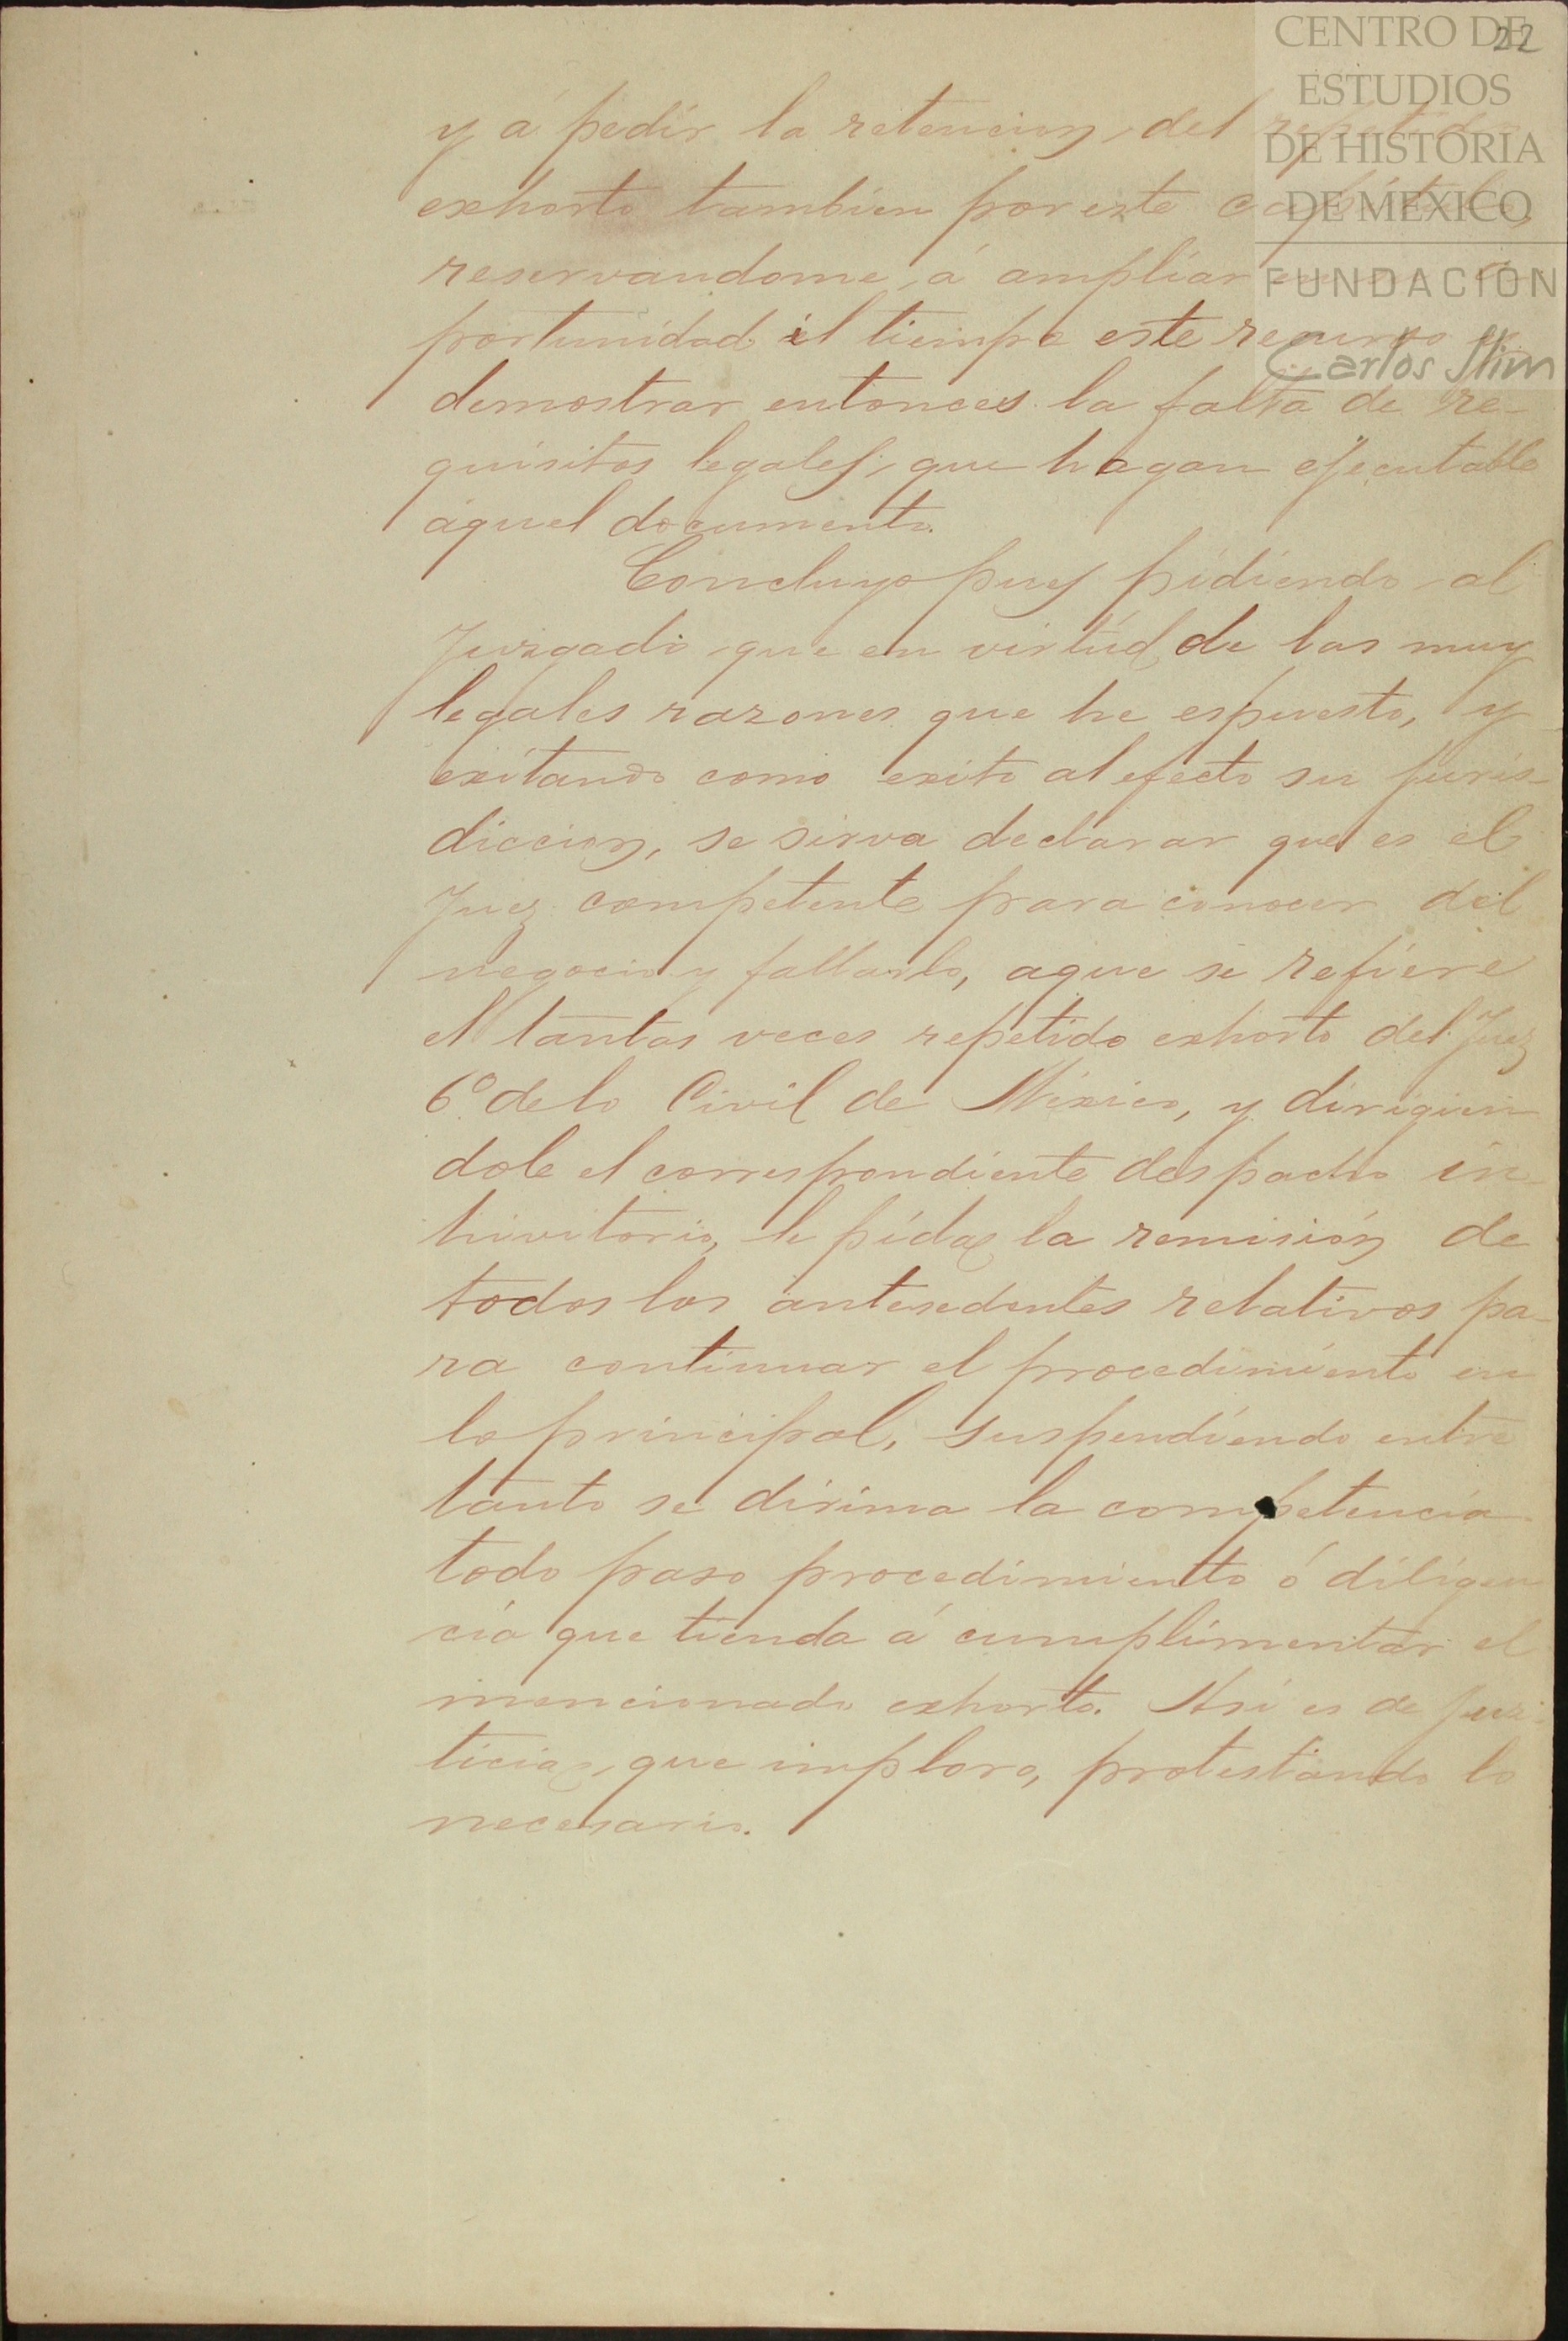 22
CENTRO DE
ESTUDIOS
DE HISTORIA
DE MÉXICO
FUNDACIÓN
Carlos Slim
y á pedir la retencion, del repetido
exhorto tambien por este capitulo,
reservandome, á ampliar
portunidad el tiempo este recurso y
demostrar entonces la falta de re-
quisitos legales, que hagan ejecutable
aquel documento.
Concluyo pues pidiendo al
Juzgado que en virtúd de las muy
legales razones que he espuesto, y
exitando como exito al efecto su juris-
diccion, se sirva declarar que es el
Juez competente para conocer del
negocio y fallarlo, aque se refiere
el tantas veces repetido exhorto del Juez
6º de lo Civil de México, y dirigien
dole el correspondiente despacho in-
hivitorio, le pida la remisión de
todos los antesedentes relativos pa-
ra continuar el procedimiento en
lo principal, suspendiendo entre
tanto se dirima la competencia
todo paso procedimiento ó diligen
cia que tienda á cumplimentar el
mencionado exhorto. Así es de jus-
ticia, que imploro, protestando lo
necesario.